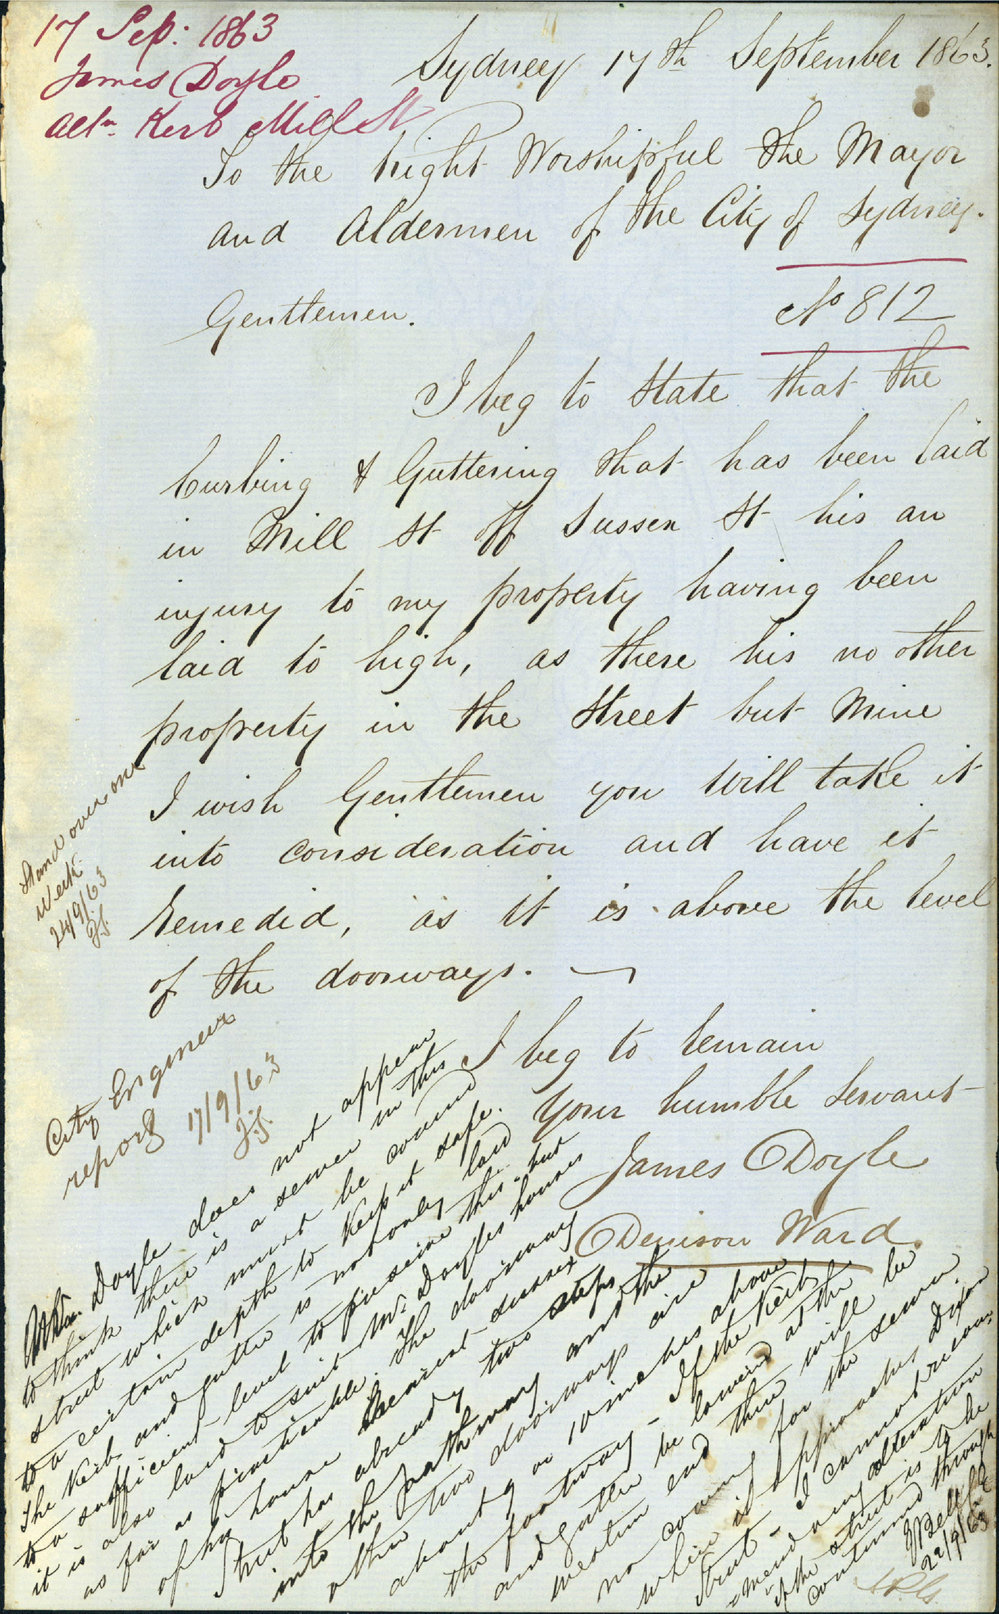 17 Sep: 1863
James Doyle
Altn. Kerb Mill St
Sydney 17th September 1863.
To the Right Worshipful the Mayor
and Aldermen of the City of Sydney.
Gentlemen.
No 812
I beg to State that the
Curbing & Guttering that has been laid
in Mill St off Sussex St his an
injury to my property having been
laid to high, as there his no other
property in the Street but Mine
I wish Gentlemen you Will take it
into consideration and have it
Remedid, as it is above the level
of the doorways.
I beg to Remain
Your humble Servant
James Doyle
Denison Ward.
Stand over one
Week
24/9/63
City Engineer
report 17/9/63
Mr. Doyle does not appear
to think there is a sewer in this
street which must be covered
to a certain depth to keep it safe.
The Kerb and gutter is not only laid
to a sufficient level to preserve this but
it is also laid to suit Mr. Doyles houses
as far as practicable. The doorway
of his house nearest Sussex
Street has already two steps
into the pathway and the
other two doorways are
about 9 or 10 inches above
the footway - If the Kerb
and gutter be lowered at the
western end there will be
no covering for the sewer
when it approaches Dixon
Street - I cannot recom-
mend any alteration
if the street is to be
continued through
22/9/63